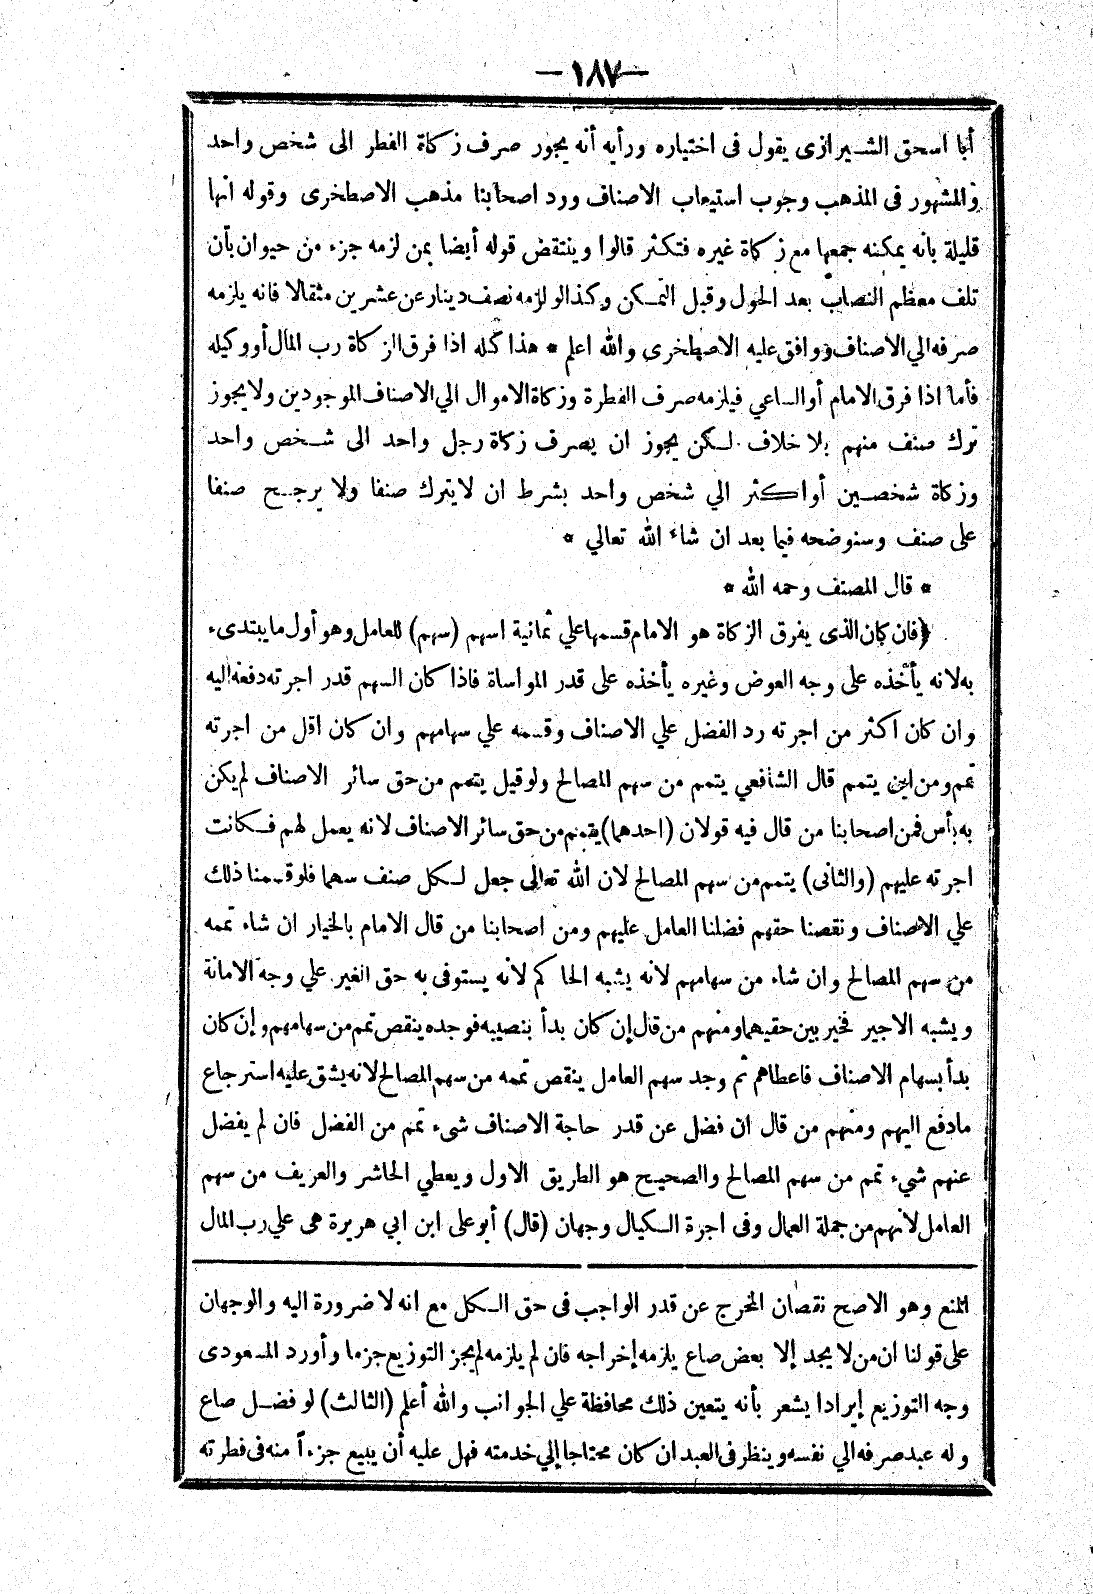 — ١٨٧ —
أبا اسحق الشيرازى يقول فى اختياره ورأيه أنه يجوز صرف زكاة الفطر الى شخص واحد
والمشهور فى المذهب وجوب استيعاب الاصناف ورد اصحابنا مذهب الاصطخرى وقوله انها
قليلة بانه يمكنه جمعها مع زكاة غيره فتكثر قالوا وينتقض قوله أيضا بمن لزمه جزء من حيوان بأن
تلف معظم النصاب بعد الحول وقبل التمكن وكذا لو لزمه نصف دينار عن عشرين مثقالا فانه يلزمه
صرفه الي الاصناف ووافق عليه الاصطخرى والله اعلم * هذا كله اذا فرق الزكاة رب المال أو وكيله
فأما اذا فرق الامام أو الساعي فيلزمه صرف الفطرة وزكاة الاموال الي الاصناف الموجودين ولا يجوز
ترك صنف منهم بلا خلاف لكن يجوز ان يصرف زكاة رجل واحد الى شخص واحد
وزكاة شخصين أو اكثر الي شخص واحد بشرط ان لا يترك صنفا ولا يرجح صنفا
على صنف وسنوضحه فيما بعد ان شاء الله تعالي *
* قال المصنف رحمه الله *
﴿فان كان الذى يفرق الزكاة هو الامام قسمها علي ثمانية اسهم (سهم) للعامل وهو أول ما يبتدىء
به لانه يأخذه على وجه العوض وغيره يأخذه على قدر المواساة فاذا كان السهم قدر اجرته دفعه اليه
وان كان اكثر من اجرته رد الفضل علي الاصناف وقسمه علي سهامهم وان كان اقل من اجرته
تمم ومن اين يتمم قال الشافعي يتمم من سهم المصالح ولو قيل يتمم من حق سائر الاصناف لم يكن
به بأس فمن اصحابنا من قال فيه قولان (احدهما) يتمم من حق سائر الاصناف لانه يعمل لهم فكانت
اجرته عليهم (والثانى) يتمم من سهم المصالح لان الله تعالى جعل لكل صنف سهما فلو قسمنا ذلك
علي الاصناف ونقصنا حقهم فضلنا العامل عليهم ومن اصحابنا من قال الامام بالخيار ان شاء تممه
من سهم المصالح وان شاء من سهامهم لانه يشبه الحاكم لانه يستوفى به حق الغير علي وجه الامانة
ويشبه الاجير فخير بين حقيهما ومنهم من قال إن كان بدأ بنصيبه فوجده ينقص تمم من سهامهم وإن كان
بدأ بسهام الاصناف فاعطاهم ثم وجد سهم العامل ينقص تممه من سهم المصالح لانه يشق عليه استرجاع
مادفع اليهم ومنهم من قال ان فضل عن قدر حاجة الاصناف شيء تمم من الفضل فان لم يفضل
عنهم شيء تمم من سهم المصالح والصحيح هو الطريق الاول ويعطي الحاشر والعريف من سهم
العامل لانهم من جملة العمال وفى اجرة الكيال وجهان (قال) أبو على ابن ابي هريرة هى علي رب المال
المنع وهو الاصح نقصان المخرج عن قدر الواجب فى حق الكل مع انه لا ضرورة اليه والوجهان
على قولنا ان من لا يجد إلا بعض صاع يلزمه إخراجه فان لم يلزمه لم يجز التوزيع جزما وأورد المسعودى
وجه التوزيع إيرادا يشعر بأنه يتعين ذلك محافظة علي الجوانب والله أعلم (الثالث) لو فضل صاع
وله عبد صرفه الي نفسه وينظر فى العبد ان كان محتاجا إلي خدمته فهل عليه أن يبيع جزءاً منه فى فطرته